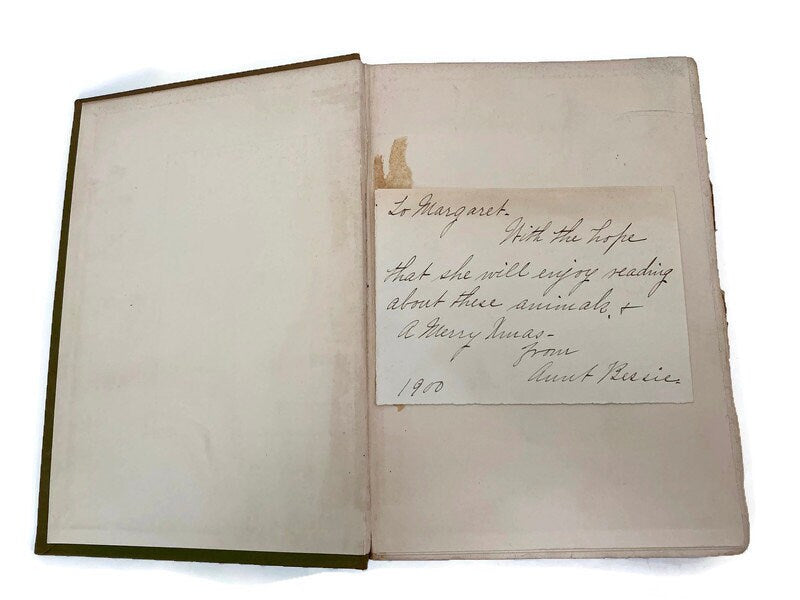 To Margaret-
With the hope
that she will enjoy reading
about these animals, &
A Merry Xmas-
from
Aunt Bessie.
1900